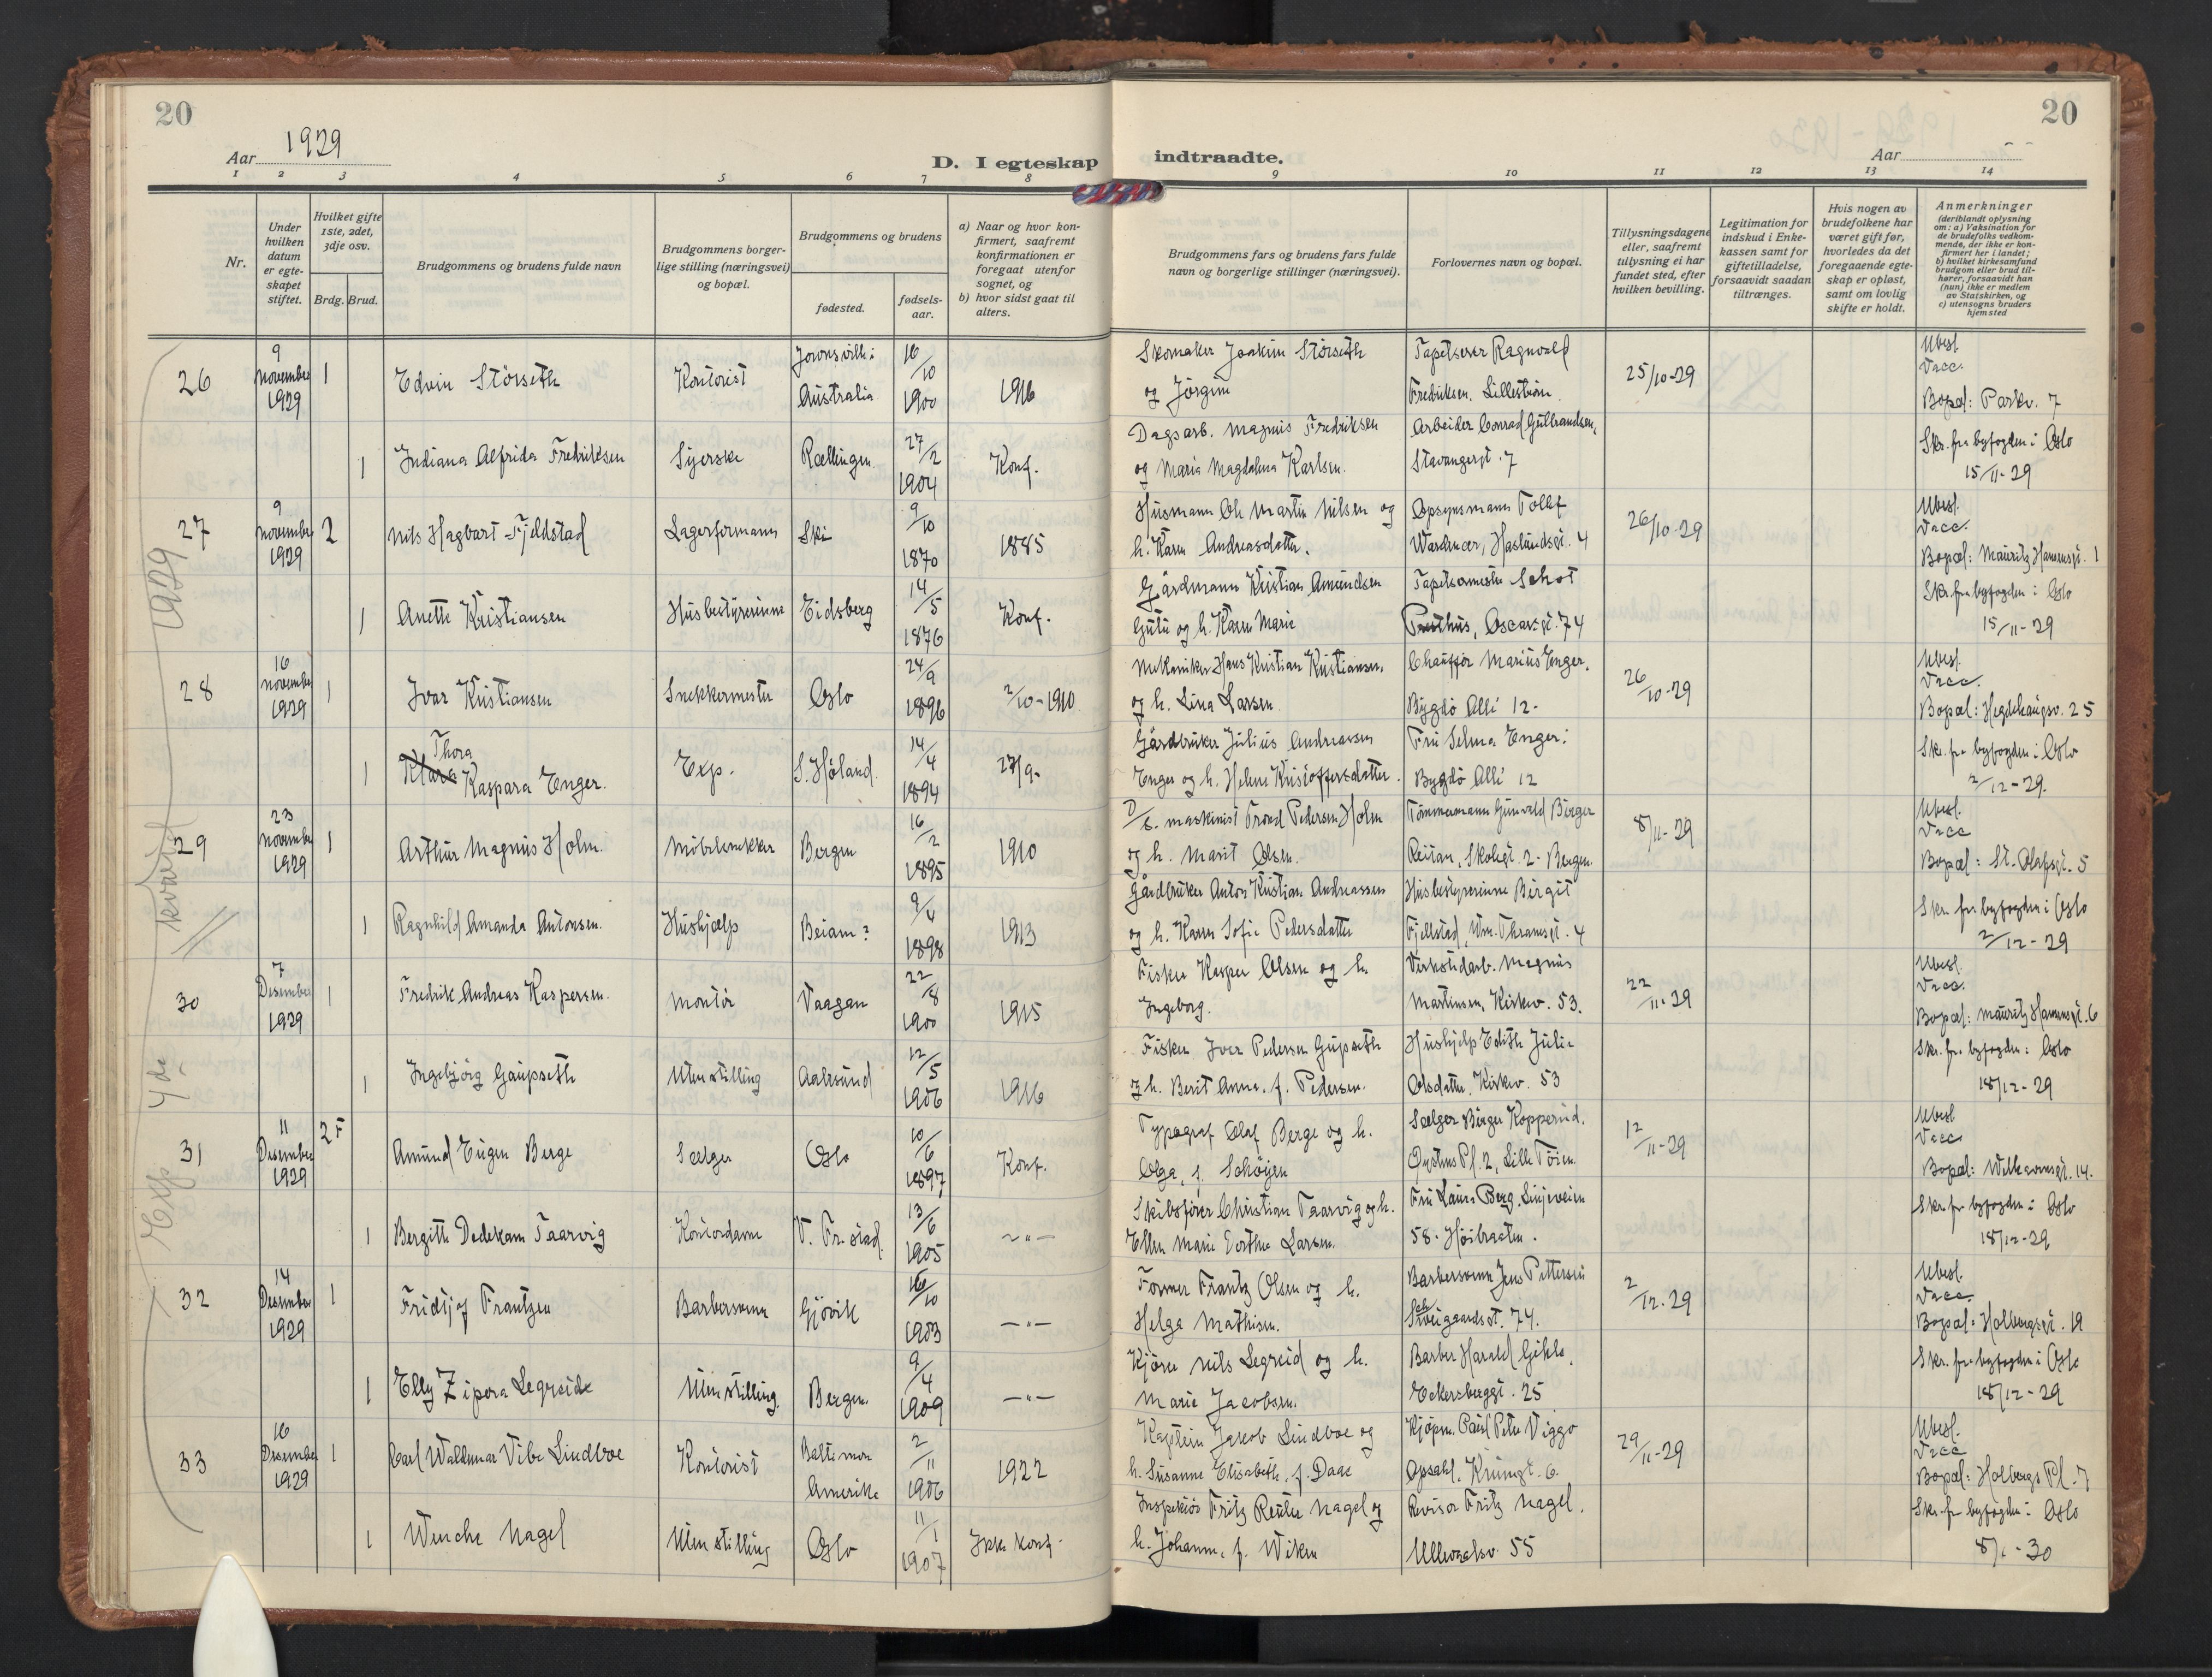 20
Aar 1929
D. I egteskap
1 2 3 4 5 6 7 8
Nr.
Under hvilken datum er egteskapet stiftet.
Hvilket gifte 1ste, 2det, 3dje osv.
Brdg. Brud.
Brudgommens og brudens fulde navn
Brudgommens borgerlige stilling (næringsvei) og bopæl.
Brudgommens og brudens
fødested. fødsels-aar.
a) Naar og hvor konfirmert, saafremt konfirmationen er foregaat utenfor sognet, og
b) hvor sidst gaat til alters.
26 9 november 1929 1 Edvin Störseth Kontorist Australia 16/10 1900 1916
1 Indiana Alfrida Fredriksen Syerske Rællingen 27/2 1904 Konf.
27 9 november 1929 2 Nils Hagbart Fjeldstad Lagerformann Ski 9/10 1870 1885
1 Anette Kristiansen Husbestyrerinne Eidsberg 14/5 1876 Konf.
28 16 november 1929 1 Ivar Kristiansen Snekkermester Oslo 24/9 1896 2/10-1910
1 Thora
Klara Kaspara Enger. Exp. S. Höland. 14/4 1894 27/9-
29 23 november 1929 1 Arthur Magnus Holm. Möbelsnekker Bergen 16/2 1895 1910
1 Ragnhild Amanda Antonsen. Hushjælp Beiarn? 9/4 1898 1913
30 7 Desember 1929 1 Fredrik Andreas Kaspersen. Montör Vaagan 22/8 1900 1915
1 Ingebjörg Gaupseth Uten stilling Aalesund 12/5 1906 1916
31 11 Desember 1929 2 F Amund Eugen Berge Selger Oslo 10/6 1897 Konf.
1 Bergitte Dedekam Taarvig Kontordame V. Fr.stad. 13/6 1905 -"-
32 14 Desember 1929 1 Fridtjof Frantzen Barbersvenn Gjövik 16/10 1903 -"-
1 Elly Zipora Legreide Uten stilling. Bergen. 9/4 1909 -"-
33 16 Desember 1929 1 Carl Waldemar Vibe Lindboe Kontorist Baltimore Amerika 2/11 1906 1922
1 Wenche Nagel Uten stilling Oslo 11/1 1907 Ikke konf.
Exp 4de kvartal 1929
20
indtraadte.
Aar
9 10 11 12 13 14
Brudgommens fars og brudens fars fulde navn og borgerlige stillinger (næringsvei).
Forlovernes navn og bopæl.
Tillysningsdagene eller, saafremt tillysning ei har fundet sted, efter hvilken bevilling.
Legitimation for indskud i Enkekassen samt for giftetilladelse, forsaavidt saadan tiltrænges.
Hvis nogen av brudefolkene har været gift før, hvorledes da det foregaaende egteskap er opløst, samt om lovlig skifte er holdt.
Anmerkninger (deriblandt oplysning om: a) Vaksination for de brudefolks vedkommende, der ikke er konfirmert her i landet; b) hvilket kirkesamfund brudgom eller brud tilhører, forsaavidt han (hun) ikke er medlem av Statskirken, og c) utensogns bruders hjemsted
Skomaker Joakim Störseth Tapetserer Ragnvald 25/10-29 Ubesl. Vacc.
og Jörgine Fredriksen. Lilleström. Bopæl: Parkv. 7
Dagsarb. Magnus Fredriksen Arbeider Conrad Gulbrandsen, Skr. fra byfogden i Oslo
og Maria Magdalena Karlsen. Stavangergt. 7 15/11-29
Husmann Ole Martin Nilsen og Opsynsmann Tollef 26/10-29 Ubesl. Vacc.
h. Karen Andreasdatter. Haslundsgt. 4 Bopæl: Mauritz Hansensgt. 1
Gårdmann Kristian Amundsen Tapetsermester Schot Skr. fra byfogden i Oslo
og h. Karen Marie Oscarsgt. 74 15/11-29
Mekaniker Hans Kristian Kristiansen. Chauffør Marius Enger. 26/10-29 Ubesl. Vacc.
og h. Lina Larsen. Bygdö Allé 12- Bopæl: Hegdehaugsv. 25
Gårdbruker Julius Andreassen Fru Selma Enger: Skr. fra byfogden i Oslo
Enger og h. Helene Kristoffersdatter. Bygdö Allé 12 2/12-29.
D/S. maskinist Trond Pedersen Holm Tömmermann Gunvald Birger 8/11-29 Ubesl. Vacc
og h. Marit Olsen. Reitan, Skolegt. 2- Bergen. Bopæl: St. Olafsgt. 5
Gårdbruker Anton Kristian Andreassen Husbestyrerinne Birgit Skr. fra byfogden i Oslo
og h. Karen Sofie Pedersdatter Fjellstad, Wm. Thranesgt. 4 2/12-29
Fisker Kasper Olsen og h. Verkstedarb. Magnus 22/11-29 Ubesl. Vacc.
Ingeborg. Martinsen, Kirkev. 53. Bopæl: Mauritz Hansensgt. 6
Fisker Iver Pedersen Gupseth Hushjelp Edith Julie Skr. fra byfogden i Oslo
og h. Berit Anna, f. Pedersen. Olsdatter. Kirkev. 53 18/12-29
Typograf Olaf Berge og h. Selger Birger Kopperud. 12/11-29 Ubesl. Vacc
Olga, f. Schöyen Öystens Pl. 2, Lille Töien. Bopæl: 14.
Skibsförer Christian Taarvig og h. Fru Laura Berg. Linjeveien Skr. fra byfogden i Oslo
Ellen Marie Dorthea Larsen. 58. Höibraaten. 18/12-29
Former Frantz Olsen og h. Barbersvenn Jens Pettersen 2/12-29 Ubesl. Vacc.
Helga Mathisen. Schweigaardsgt. 74. Bopæl: Holbergsgt. 19
Kjörer Nils Legreid og h. Barber Harald Gihle. Skr. fra byfogden i Oslo
Marie Jacobsen. Eckersberggt. 25 18/12-29
Kaptein Jakob Lindboe og Kjöpm. Carl Peter Viggo 29/11-29 Ubesl. Vacc
h. Susanne Elisabeth, f. Daae Opsahl. 6. Bopæl: Holbergs Pl. 7
Inspektör Fritz Reuter Nagel og Revisor Fritz Nagel. Skr. fra byfogden i Oslo
h. Johanne, f. Wiken Ullevaalsv. 55 8/1-30